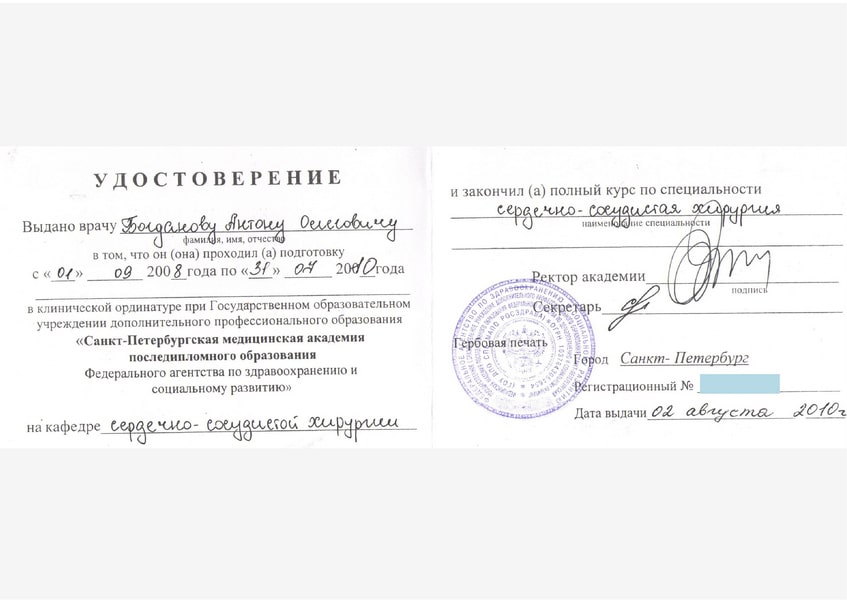 УДОСТОВЕРЕНИЕ
Выдано врачу Богданову Антону Олеговичу
фамилия, имя, отчество
в том, что он (она) проходил (а) подготовку
с «01» 09 2008 года по «31» 07 2010 года
в клинической ординатуре при Государственном образовательном
учреждении дополнительного профессионального образования
«Санкт-Петербургская медицинская академия
последипломного образования
Федерального агентства по здравоохранению и
социальному развитию»
на кафедре сердечно-сосудистой хирургии
и закончил (а) полный курс по специальности
сердечно-сосудистая хирургия
наименование специальности
Ректор академии
подпись
Секретарь
Гербовая печать
Город Санкт- Петербург
Регистрационный №
Дата выдачи 02 августа 2010г